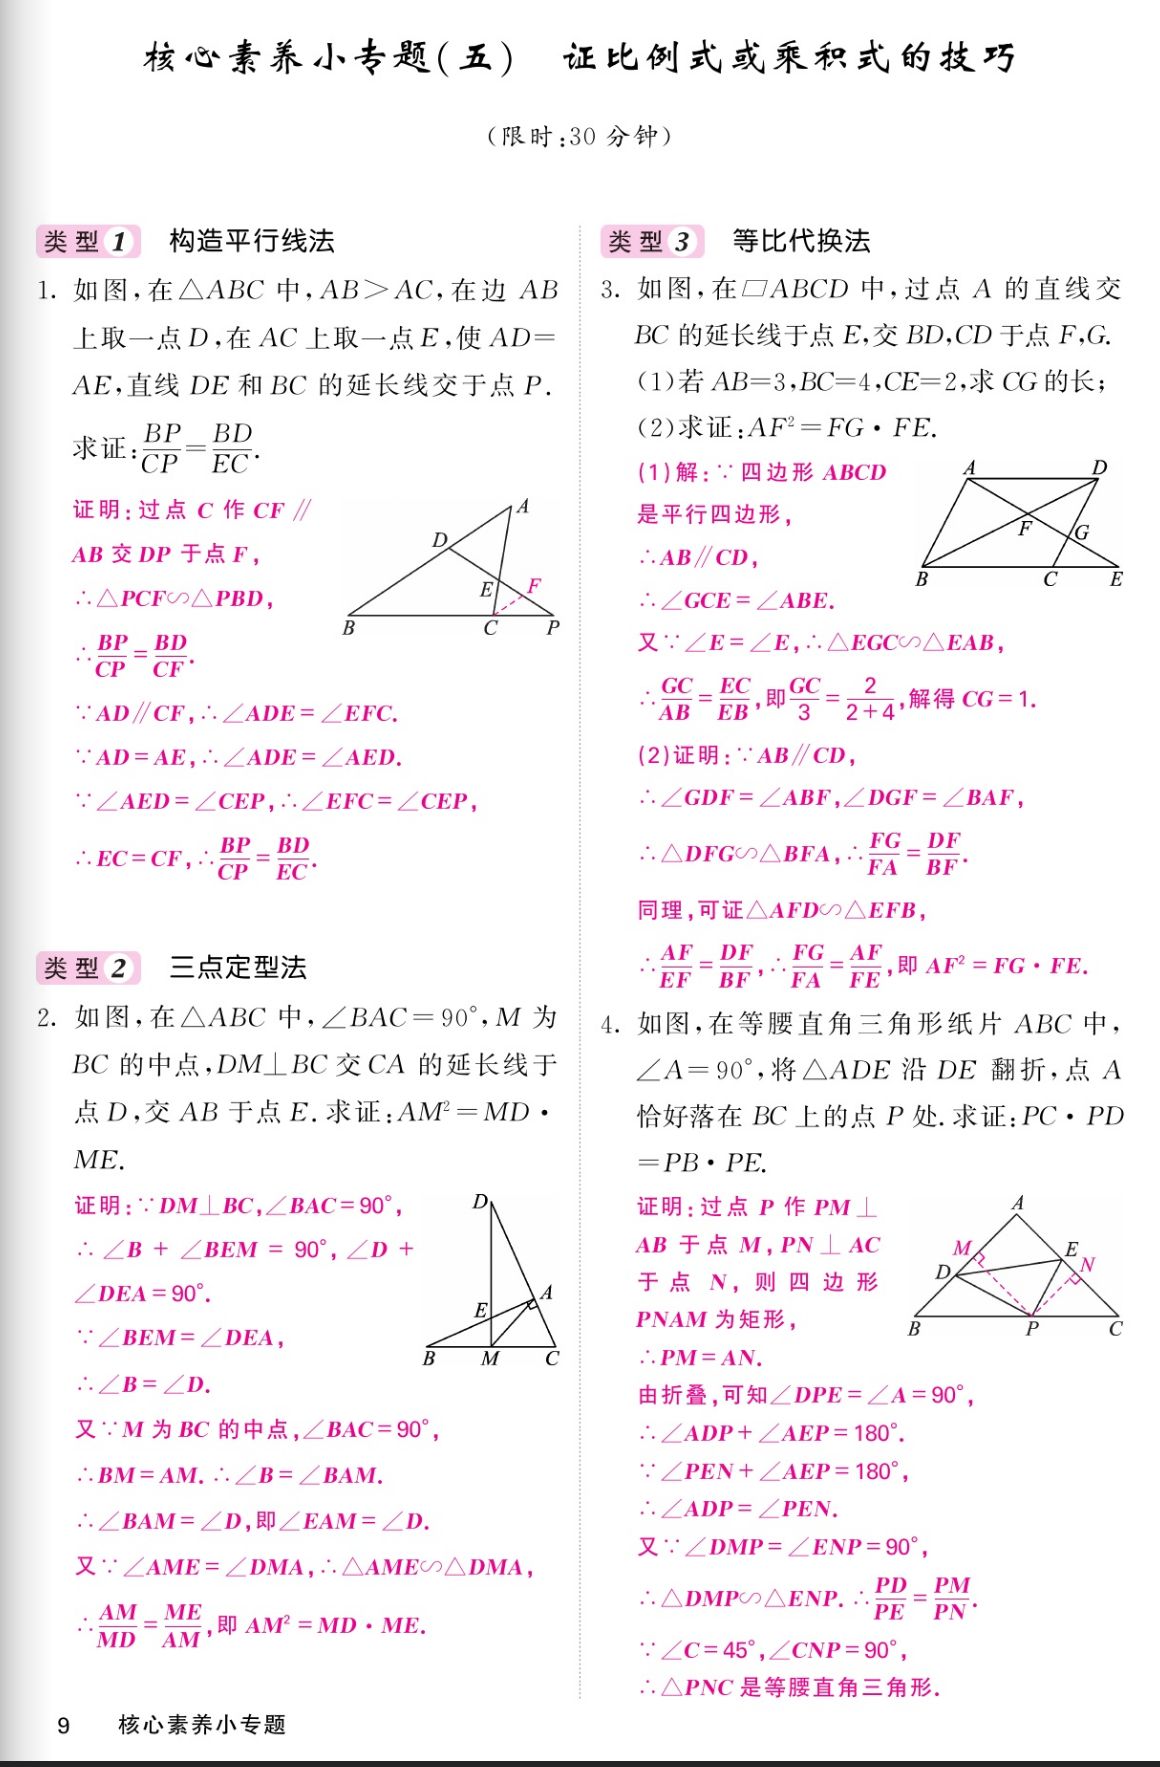 核心素养小专题(五) 证比例式或乘积式的技巧
(限时:30 分钟)
类型1 构造平行线法
1. 如图,在△ABC 中,AB>AC,在边 AB
上取一点 D,在 AC 上取一点 E,使 AD=
AE,直线 DE 和 BC 的延长线交于点 P.
求证:BP/CP=BD/EC.
证明:过点 C 作 CF∥
AB 交 DP 于点 F,
∴△PCF∽△PBD,
∴BP/CP=BD/CF.
∵AD∥CF,∴∠ADE=∠EFC.
∵AD=AE,∴∠ADE=∠AED.
∵∠AED=∠CEP,∴∠EFC=∠CEP,
∴EC=CF,∴BP/CP=BD/EC.
A
D
E
F
B
C
P
类型2 三点定型法
2. 如图,在△ABC 中,∠BAC=90°,M 为
BC 的中点,DM⊥BC 交 CA 的延长线于
点 D,交 AB 于点 E.求证:AM²=MD·
ME.
证明:∵DM⊥BC,∠BAC=90°,
∴∠B+∠BEM=90°,∠D+
∠DEA=90°.
∵∠BEM=∠DEA,
∴∠B=∠D.
又∵M 为 BC 的中点,∠BAC=90°,
∴BM=AM.∴∠B=∠BAM.
∴∠BAM=∠D,即∠EAM=∠D.
又∵∠AME=∠DMA,∴△AME∽△DMA,
∴AM/MD=ME/AM,即 AM²=MD·ME.
D
A
E
B
M
C
类型3 等比代换法
3. 如图,在□ABCD 中,过点 A 的直线交
BC 的延长线于点 E,交 BD,CD 于点 F,G.
(1)若 AB=3,BC=4,CE=2,求 CG 的长;
(2)求证:AF²=FG·FE.
(1)解:∵四边形 ABCD
是平行四边形,
∴AB∥CD,
∴∠GCE=∠ABE.
又∵∠E=∠E,∴△EGC∽△EAB,
∴GC/AB=EC/EB,即GC/3=2/(2+4),解得 CG=1.
(2)证明:∵AB∥CD,
∴∠GDF=∠ABF,∠DGF=∠BAF,
∴△DFG∽△BFA,∴FG/FA=DF/BF.
同理,可证△AFD∽△EFB,
∴AF/EF=DF/BF,∴FG/FA=AF/FE,即 AF²=FG·FE.
A
D
F
G
B
C
E
4. 如图,在等腰直角三角形纸片 ABC 中,
∠A=90°,将△ADE 沿 DE 翻折,点 A
恰好落在 BC 上的点 P 处.求证:PC·PD
=PB·PE.
证明:过点 P 作 PM⊥
AB 于点 M,PN⊥AC
于点 N,则四边形
PNAM 为矩形,
∴PM=AN.
由折叠,可知∠DPE=∠A=90°,
∴∠ADP+∠AEP=180°.
∵∠PEN+∠AEP=180°,
∴∠ADP=∠PEN.
又∵∠DMP=∠ENP=90°,
∴△DMP∽△ENP.∴PD/PE=PM/PN.
∵∠C=45°,∠CNP=90°,
∴△PNC 是等腰直角三角形.
A
M
E
N
D
B
P
C
9 核心素养小专题